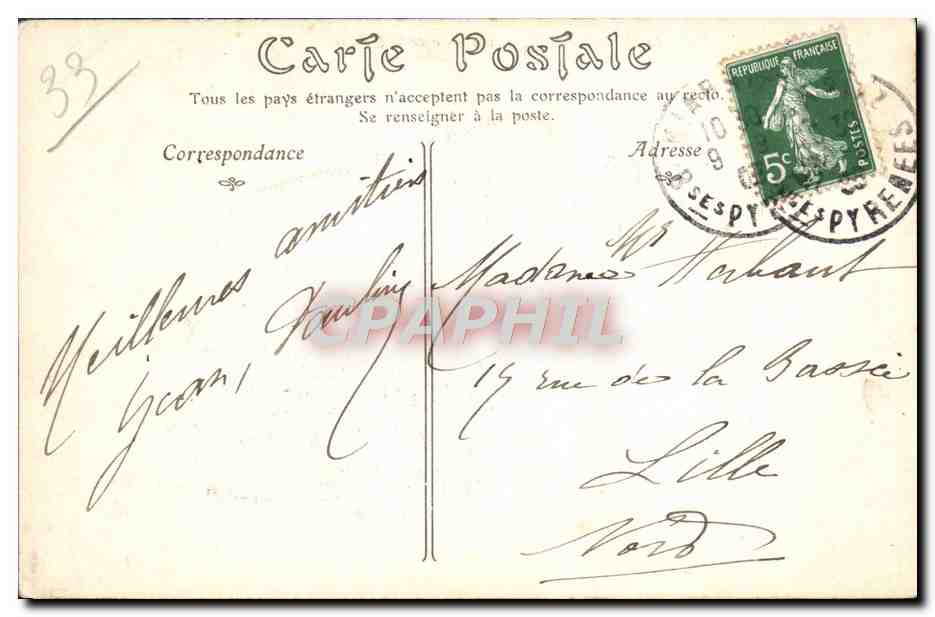 33
Carte Postale
Tous les pays étrangers n'acceptent pas la correspondance au recto.
Se renseigner à la poste.
Correspondance
Adresse
REPUBLIQUE FRANÇAISE
5c
POSTES
10
Bses PYRENEES
Meilleures amitiés
Jean, Pauline
Madame
15 rue de la Bassée
Lille
Nord
CPAPHIL